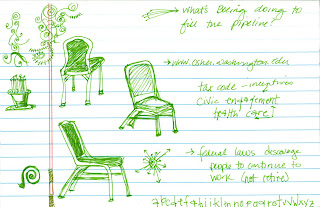 → what's Boeing doing to
fill the pipeline?
→ www.osher.washington.edu
tax code - incentives
civic engagement
health care]
→ federal laws discourage
people to continue to
work (not retire)
abcdefghijklmnopqrstuvwxyz